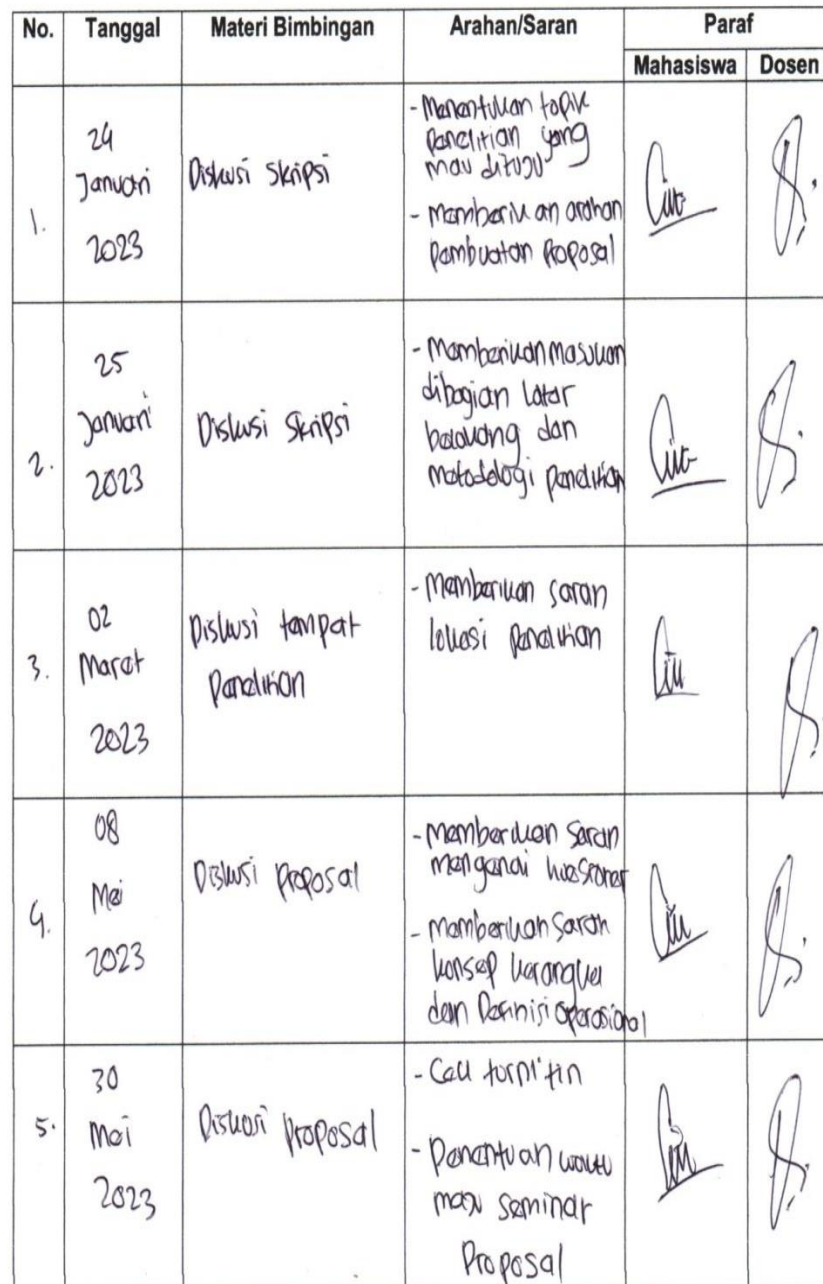 No. Tanggal Materi Bimbingan Arahan/Saran Paraf
Mahasiswa Dosen
1.
24
Januari
2023
Diskusi Skripsi
- Menentukan topik
penelitian yang
mau dituju
- Memberikan arahan
pembuatan Proposal
2.
25
Januari
2023
Diskusi Skripsi
- Memberikan masukan
dibagian latar
belakang dan
metodologi penelitian
3.
02
Maret
2023
Diskusi tempat
Penelitian
- Memberikan saran
lokasi penelitian
4.
08
Mei
2023
Diskusi Proposal
- Memberikan Saran
mengenai kuesioner
- Memberikan Saran
konsep kerangka
dan Definisi Operasional
5.
30
Mei
2023
Diskusi Proposal
- Cek turnitin
- Penentuan waktu
maju seminar
Proposal